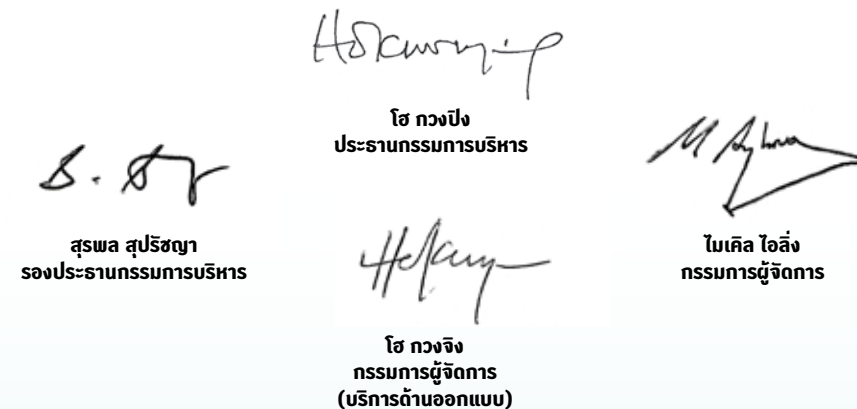 โฮ กวงปิง
ประธานกรรมการบริหาร
สุรพล สุปรัชญา
รองประธานกรรมการบริหาร
ไมเคิล ไอลิ่ง
กรรมการผู้จัดการ
โฮ กวงจิง
กรรมการผู้จัดการ
(บริการด้านออกแบบ)